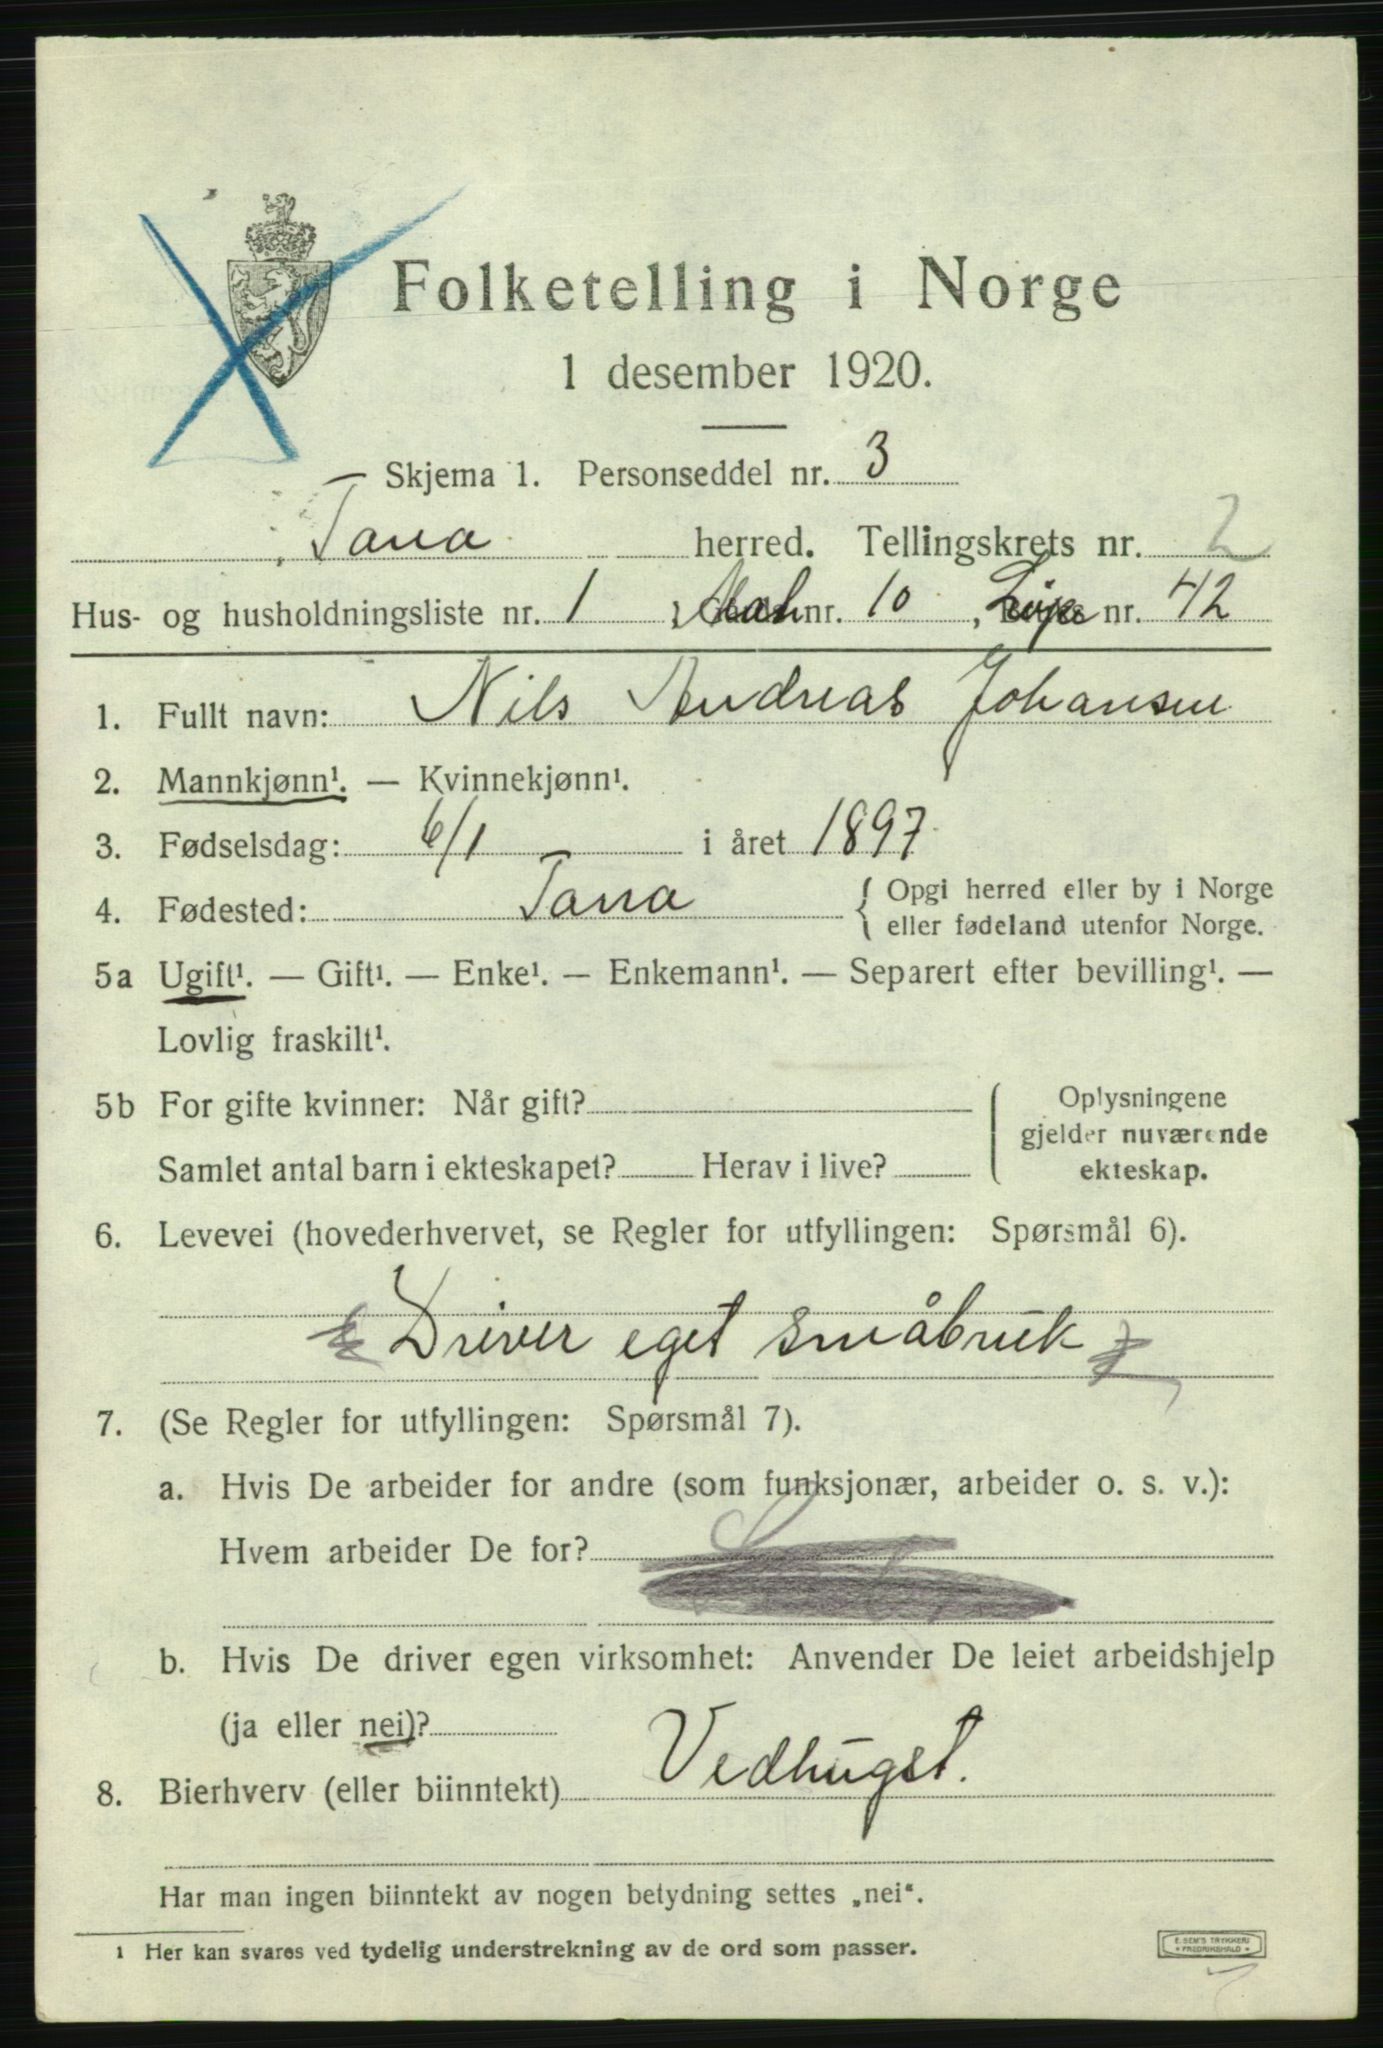 Folketelling i Norge
1 desember 1920.
Skjema 1. Personseddel nr. 3
Tana herred. Tellingskrets nr. 2
Hus- og husholdningsliste nr. 1, nr. 10, nr. 42
1. Fullt navn: Nils Andreas Johansen
2. Mannkjønn¹. — Kvinnekjønn¹.
3. Fødselsdag: 6/1 i året 1897
4. Fødested: Tana { Opgi herred eller by i Norge
eller fødeland utenfor Norge.
5a Ugift¹. — Gift¹. — Enke¹. — Enkemann¹. — Separert efter bevilling¹. —
Lovlig fraskilt¹.
5b For gifte kvinner: Når gift?
Samlet antal barn i ekteskapet? Herav i live?
Oplysningene
gjelder nuværende
ekteskap.
6. Levevei (hovederhvervet, se Regler for utfyllingen: Spørsmål 6).
Driver eget småbruk
7. (Se Regler for utfyllingen: Spørsmål 7).
a. Hvis De arbeider for andre (som funksjonær, arbeider o. s. v.):
Hvem arbeider De for?
b. Hvis De driver egen virksomhet: Anvender De leiet arbeidshjelp
(ja eller nei)?
8. Bierhverv (eller biinntekt) Vedhugst.
Har man ingen biinntekt av nogen betydning settes „nei“.
1 Her kan svares ved tydelig understrekning av de ord som passer.
E. SEM'S TRYKKERI
FREDRIKSHALD